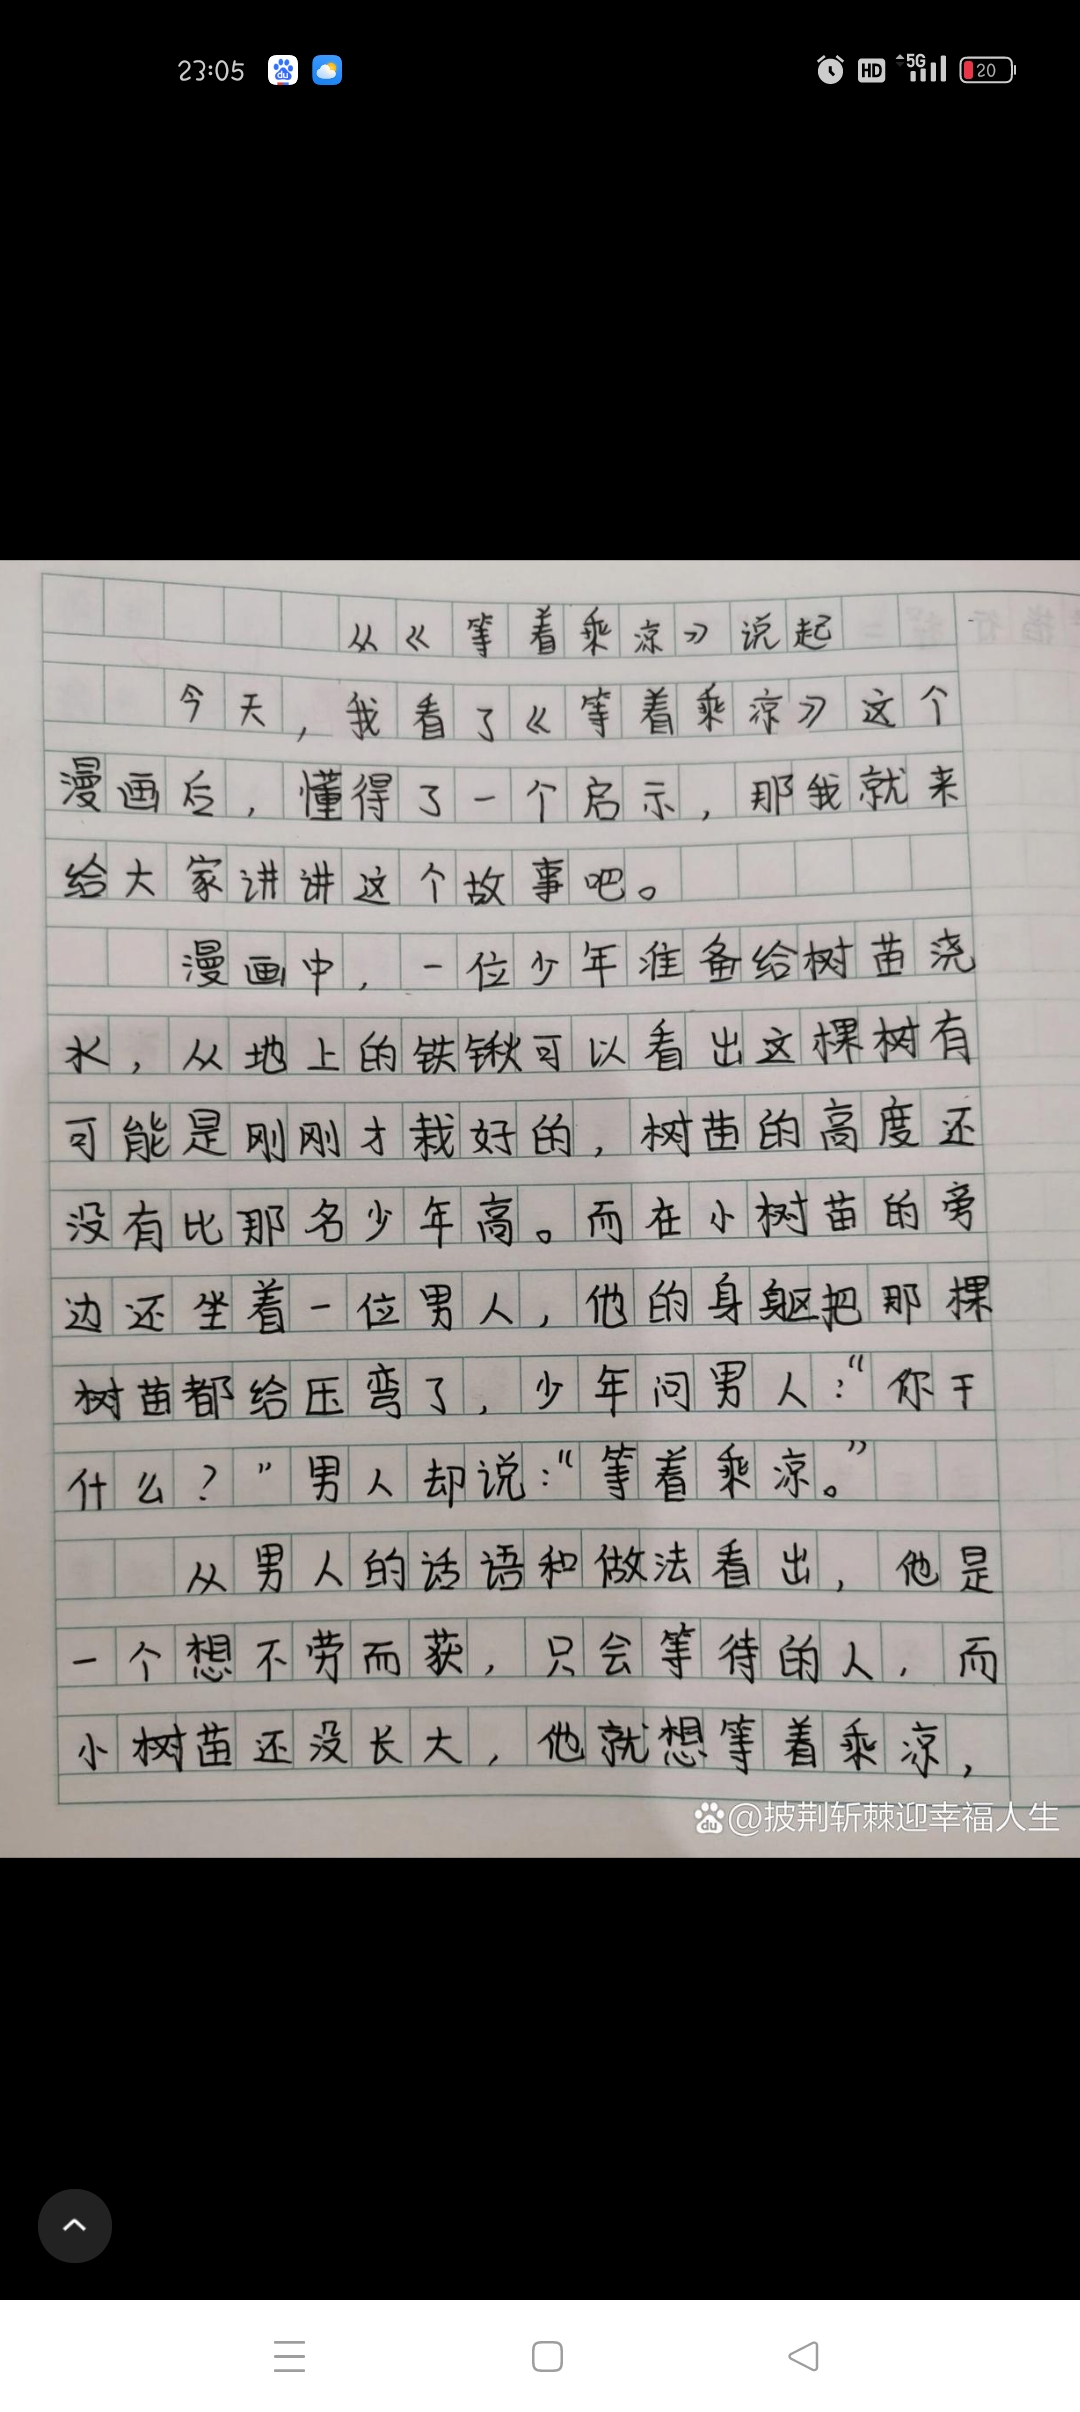 23:05
HD
5G
20
从《等着乘凉》说起
今天,我看了《等着乘凉》这个
漫画后,懂得了一个启示,那我就来
给大家讲讲这个故事吧。
漫画中,一位少年准备给树苗浇
水,从地上的铁锹可以看出这棵树有
可能是刚刚才栽好的,树苗的高度还
没有比那名少年高。而在小树苗的旁
边还坐着一位男人,他的身躯把那棵
树苗都给压弯了,少年问男人:“你干
什么?”男人却说:“等着乘凉。”
从男人的话语和做法看出,他是
一个想不劳而获,只会等待的人,而
小树苗还没长大,他就想等着乘凉,
du@披荆斩棘迎幸福人生